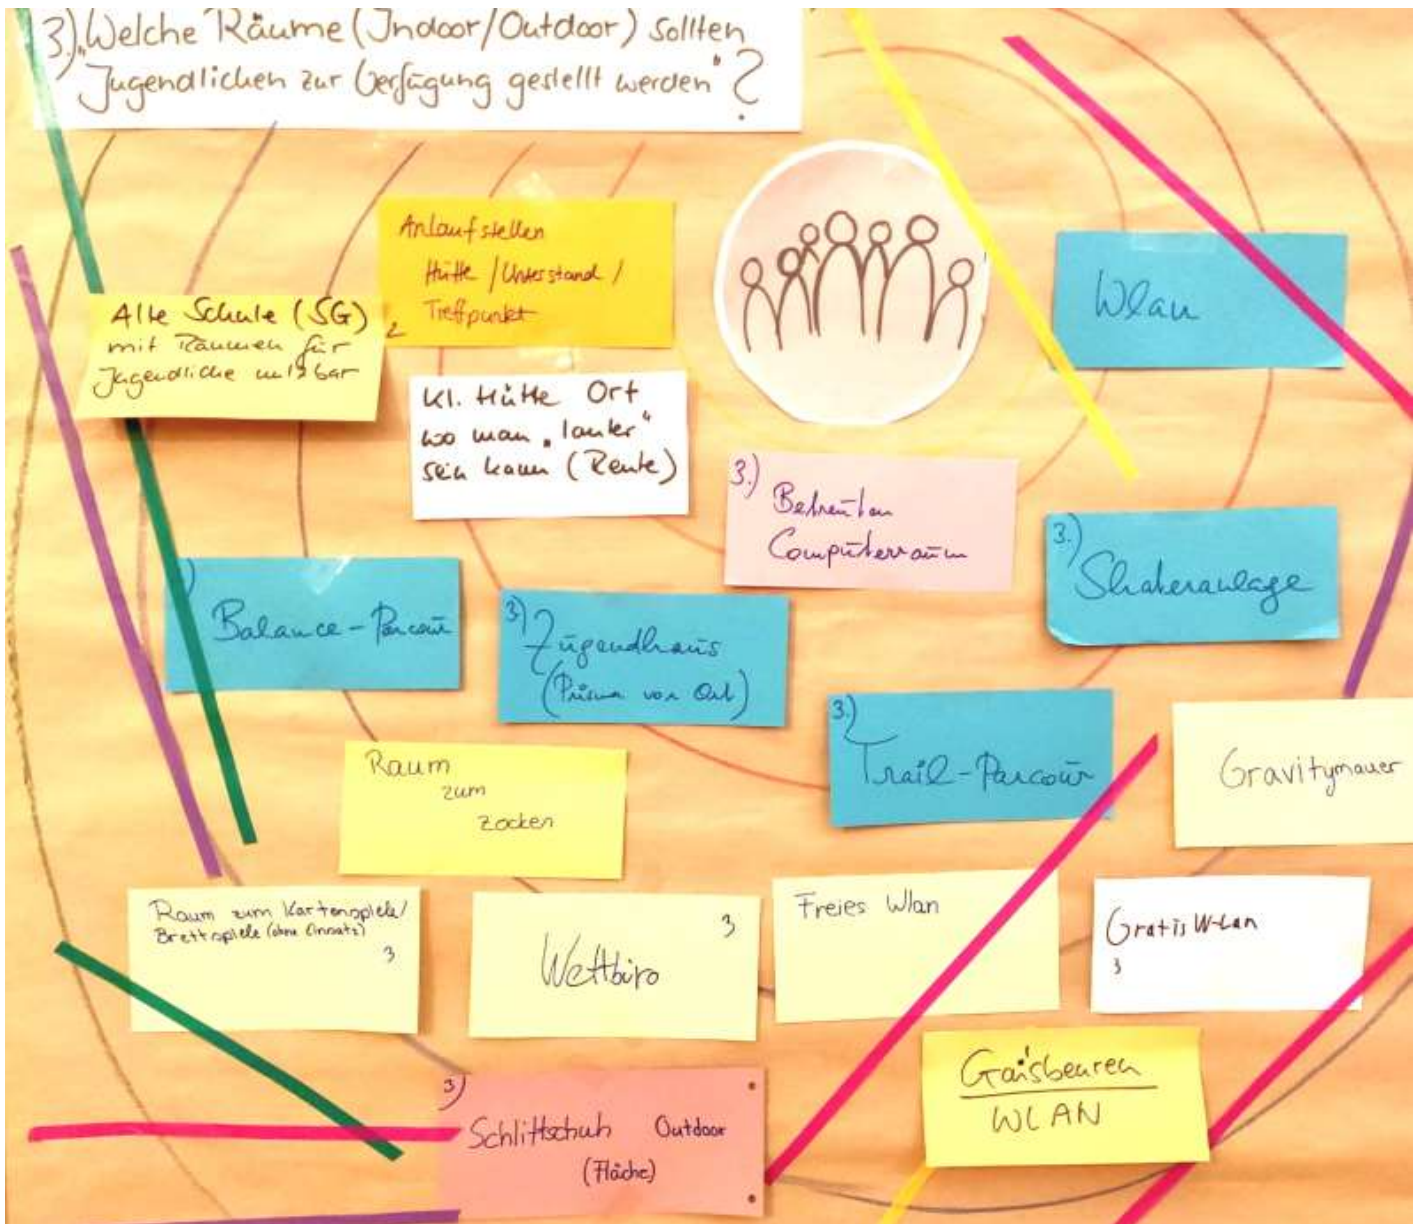 3.) „Welche Räume (Indoor/Outdoor) sollten
Jugendlichen zur Verfügung gestellt werden" ?
Anlaufstellen
Hütte / Unterstand /
Treffpunkt
Alte Schule (SG)
mit Räumen für
Jugendliche nutzbar
2
Kl. Hütte Ort
wo man „lauter"
sein kann (Reute)
Wlan
3.)
Betreuten
Computerraum
3.)
Skateranlage
)
Balance-Parcour
3)
Jugendhaus
(Prisma vor Ort)
3.)
Trail-Parcour
Gravitymauer
Raum
zum
zocken
Raum zum Kartenspiele/
Brettspiele (ohne Einsatz)
3
3
Wettbüro
Freies Wlan
Gratis W-Lan
3
3)
Schlittschuh Outdoor
(Fläche)
Gaisbeuren
WLAN